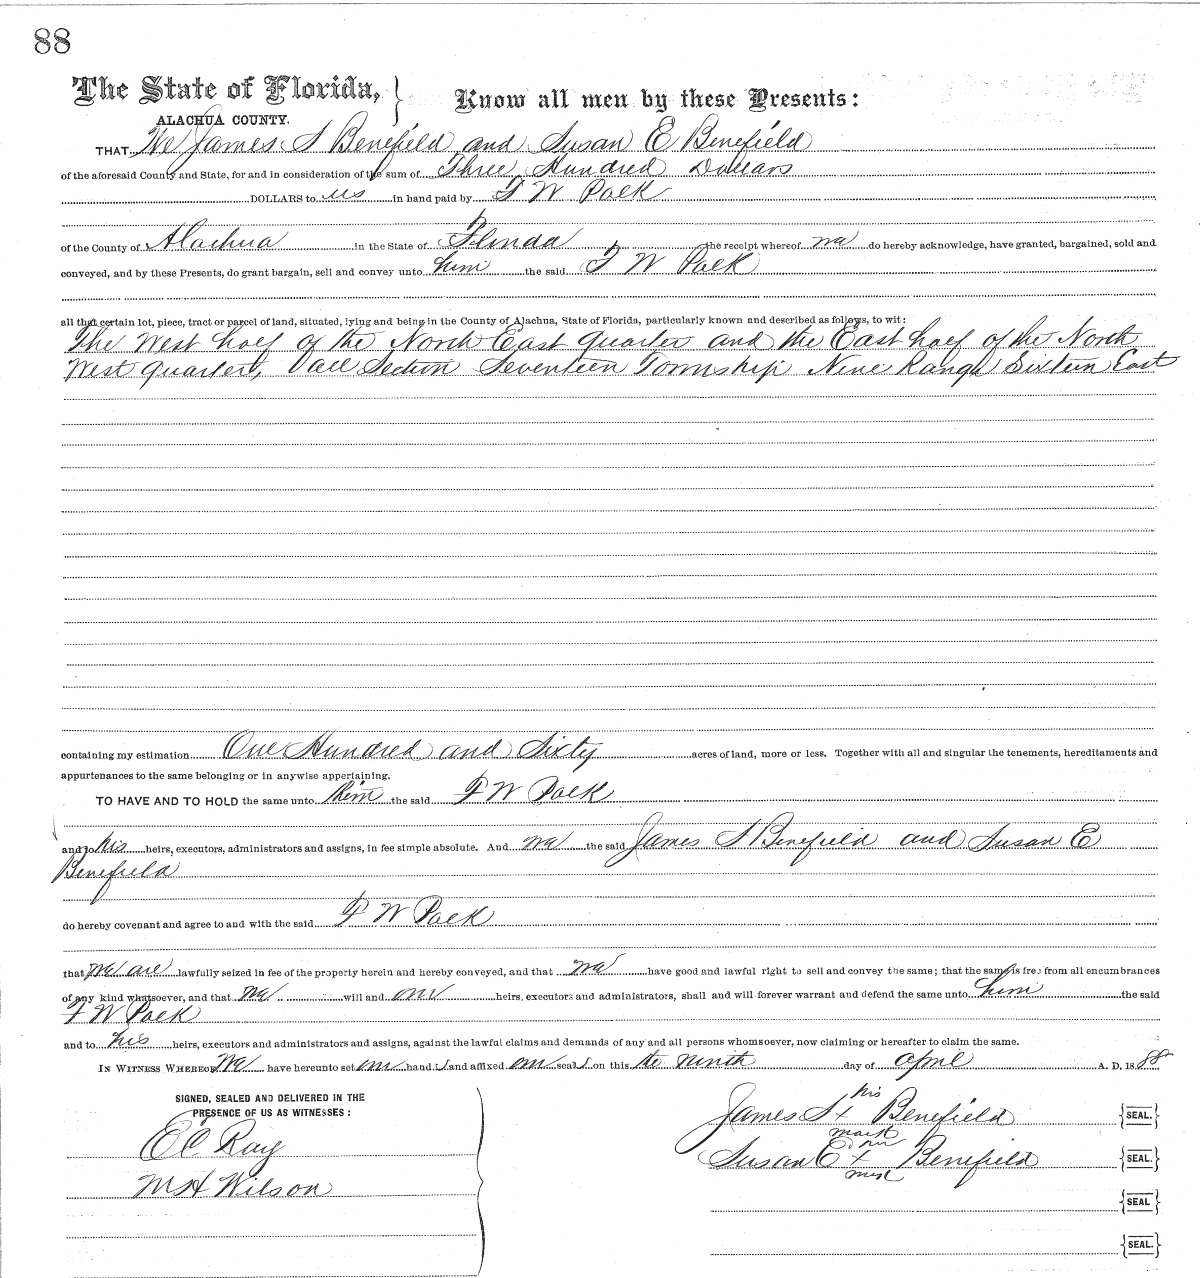 88
The State of Florida, } Know all men by these Presents:
ALACHUA COUNTY.
THAT We James S Benefield and Susan E Benefield
of the aforesaid County and State, for and in consideration of the sum of Three Hundred Dollars
DOLLARS to us in hand paid by F W Polk
of the County of Alachua in the State of Florida the receipt whereof we do hereby acknowledge, have granted, bargained, sold and
conveyed, and by these Presents, do grant bargain, sell and convey unto him the said F W Polk
all that certain lot, piece, tract or parcel of land, situated, lying and being in the County of Alachua, State of Florida, particularly known and described as follows, to wit:
The West half of the North East quarter and the East half of the North
West quarter, all Section Seventeen Township Nine Range Sixteen East
containing my estimation One Hundred and Sixty acres of land, more or less. Together with all and singular the tenements, hereditaments and
appurtenances to the same belonging or in anywise appertaining.
TO HAVE AND TO HOLD the same unto him the said F W Polk
and to his heirs, executors, administrators and assigns, in fee simple absolute. And we the said James S Benefield and Susan E
Benefield
do hereby covenant and agree to and with the said F W Polk
that we are lawfully seized in fee of the property herein and hereby conveyed, and that we have good and lawful right to sell and convey the same; that the same is free from all encumbrances
of any kind whatsoever, and that we will and our heirs, executors and administrators, shall and will forever warrant and defend the same unto him the said
F W Polk
and to his heirs, executors and administrators and assigns, against the lawful claims and demands of any and all persons whomsoever, now claiming or hereafter to claim the same.
IN WITNESS WHEREOF We have hereunto set our hands and affixed our seals on this the ninth day of April A. D. 1888
SIGNED, SEALED AND DELIVERED IN THE
PRESENCE OF US AS WITNESSES:
E C Ray
M H Wilson
his
James S + Benefield {SEAL.}
mark
her
Susan E + Benefield {SEAL.}
mark
{SEAL}
{SEAL.}